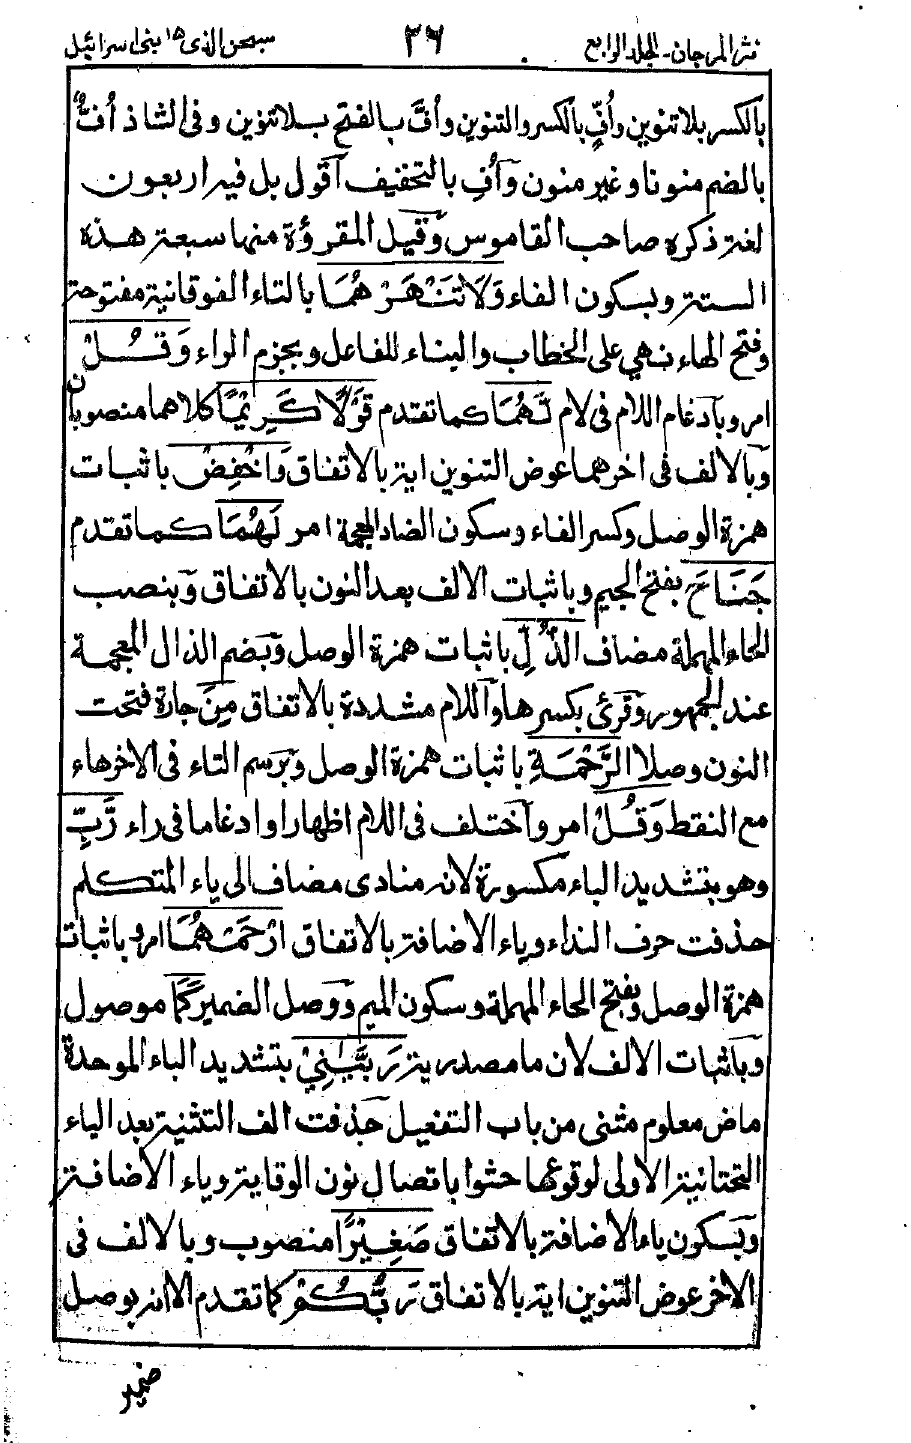 نثر المرجان - الجلد الرابع ٣٦ سبحن الذى ١٥ بنى اسرائيل
بالكسر بلا تنوين وأُفٍّ بالكسر والتنوين وأُفَّ بالفتح بلا تنوين وفى الشاذ أُفٌّ
بالضم منونا وغير منون وَأُفِ بالتخفيف آقول بل فيه اربعون
لغة ذكره صاحب القاموس وَقيل المقروءة منها سبعة هذه
الستة وبسكون الفاء وَلَا تَنْهَرْ هُمَا بالتاء الفوقانية مفتوحة
وفتح الهاء نهي على الخطاب والبناء للفاعل وبجزم الراء وَقُلْ
امر وبآدغام اللام فى لام لَّهُمَا كما تقدم قَوْلًا كَرِيْمًا كلاهما منصوبان
وَبالالف فى اخرهما عوض التنوين اية بالاتفاق وَاخْفِضْ باثبات
همزة الوصل وكسر الفاء وسكون الضاد المعجمة امر لَهُمَا كما تقدم
جَنَاحَ بفتح الجيم وباثبات الالف بعد النون بالاتفاق وَبنصب
الحاء المهملة مضاف الذُّلِّ باثبات همزة الوصل وَبضم الذال المعجمة
عند الجمهور وَقرئ بكسرها وآللام مشددة بالاتفاق مِنَ جارة فتحت
النون وصلا الرَّحْمَةِ باثبات همزة الوصل وبَرسم التاء فى الاخر هاء
مع النقط وَقُلْ امر وآختلف فى اللام اظهارا وادغاما فى راء رَّبِّ
وهو بتشديد الباء مكسورة لانه منادى مضاف الى ياء المتكلم
حذفت حرف النداء وياء الاضافة بالاتفاق ارْحَمْهُمَا امر وباثبات
همزة الوصل وبفتح الحاء المهملة وسكون الميم وَوصل الضمير كَمَا موصول
وبآثبات الالف لان ما مصدرية رَبَّيٰنِيْ بتشديد الباء الموحدة
ماض معلوم مثنى من باب التفعيل حَذفت الف التثنية بعد الياء
التحتانية الاولى لوقوعها حشوا باتصال نون الوقاية وياء الاضافة
وَبسكون ياء الاضافة بالاتفاق صَغِيْرًا منصوب وبالالف فى
الاخر عوض التنوين اية بالاتفاق رَبُّكُمْ كما تقدم الا انه بوصل
ضمير